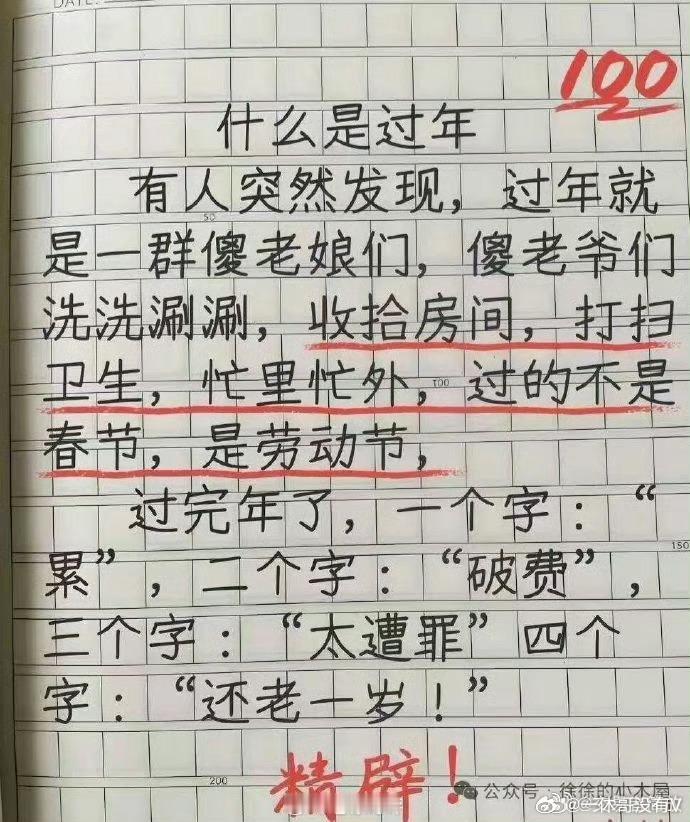 DATE:
100
什么是过年
有人突然发现，过年就
50
是一群傻老娘们，傻老爷们
洗洗涮涮，收拾房间，打扫
卫生，忙里忙外，过的不是
100
春节，是劳动节，
过完年了，一个字：“
150
累”，二个字：“破费”，
三个字：“太遭罪”四个
字：“还老一岁！”
200
精辟！
公众号·徐徐的小木屋